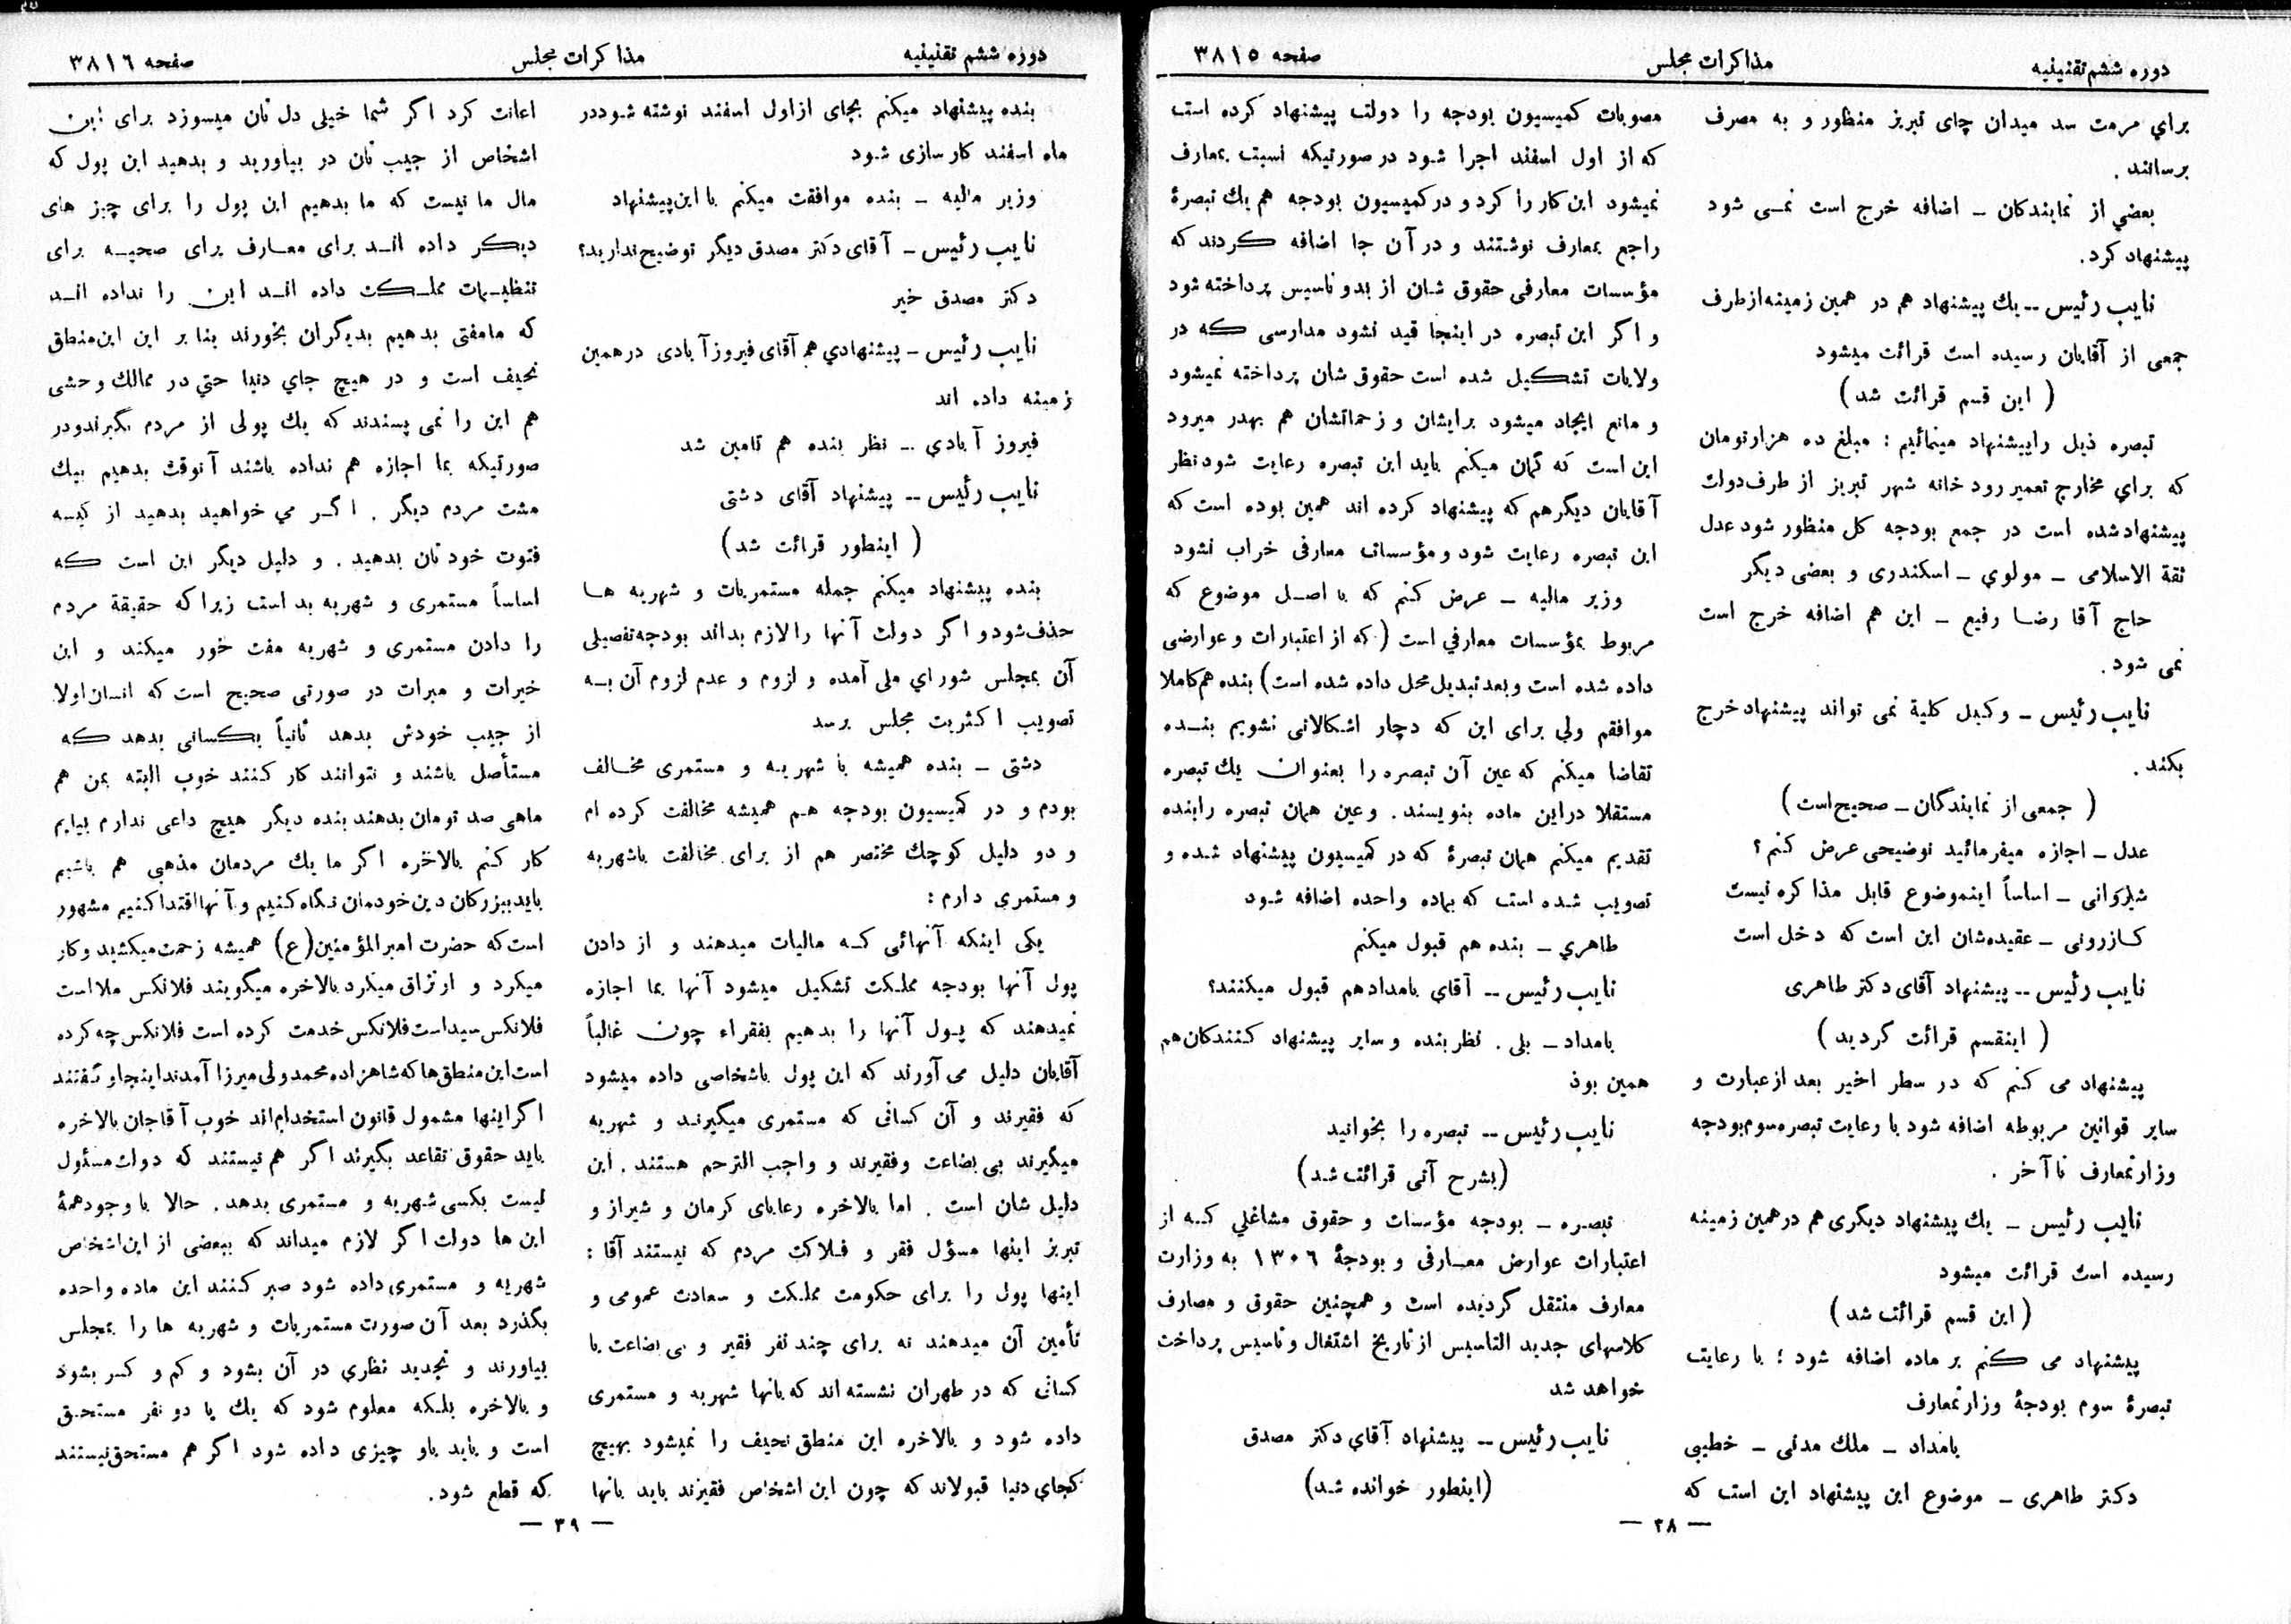 دوره ششم تقنینیه
مذاکرات مجلس
صفحه ۳۸۱۵
براي مرمت سد میدان چای تبریز منظور و به مصرف
برسانند .
بعضي از نمایندکان ــ اضافه خرج است نمــی شود
پیشنهاد کرد.
نایب رئیس -- یك پیشنهاد هم در همین زمینه از طرف
جمعی از آقایان رسیده است قرائت میشود
( این قسم قرائت شد )
تبصره ذیل را پیشنهاد مینمائیم : مبلغ ده هزار تومان
که براي مخارج تعمیر رود خانه شهر تبریز از طرف دولت
پیشنهاد شده است در جمع بودجه کل منظور شود عدل
ثقة الاسلامی ــ مولوي ــ اسکندری و بعضی دیگر
حاج آقا رضا رفیع ــ این هم اضافه خرج است
نمی شود .
نایب رئیس ــ وکیل کلیة نمی تواند پیشنهاد خرج
بکند .
( جمعی از نمایندگان ــ صحیح است )
عدل ــ اجازه میفرمائید توضیحی عرض کنم ؟
شیروانی ــ اساساً اینموضوع قابل مذاکره نیست
کازرونی ــ عقیده‌شان این است که دخل است
نایب رئیس -- پیشنهاد آقای دکتر طاهری
( اینقسم قرائت گردید )
پیشنهاد می کنم که در سطر اخیر بعد از عبارت و
سایر قوانین مربوطه اضافه شود با رعایت تبصره سوم بودجه
وزارتمعارف تا آخر .
نایب رئیس ــ یك پیشنهاد دیگری هم در همین زمینه
رسیده است قرائت میشود
( این قسم قرائت شد )
پیشنهاد می کنم بر ماده اضافه شود ؛ با رعایت
تبصرهٔ سوم بودجهٔ وزارتمعارف
یامداد ــ ملك مدنی ــ خطیبی
دکتر طاهری ــ موضوع این پیشنهاد این است که
مصوبات کمیسیون بودجه را دولت پیشنهاد کرده است
که از اول اسفند اجرا شود در صورتیکه نسبت بمعارف
نمیشود این کار را کرد و در کمیسیون بودجه هم یك تبصرهٔ
راجع بمعارف نوشتند و در آن جا اضافه کردند که
مؤسسات معارفی حقوق شان از بدو تاسیس پرداخته شود
و اگر این تبصره در اینجا قید نشود مدارسی که در
ولایات تشکیل شده است حقوق شان پرداخته نمیشود
و مانع ایجاد میشود برایشان و زحماتشان هم بهدر میرود
این است که گمان میکنم باید این تبصره رعایت شود نظر
آقایان دیگر هم که پیشنهاد کرده اند همین بوده است که
این تبصره رعایت شود و مؤسسات معارفی خراب نشود
وزیر مالیه ــ عرض کنم که با اصل موضوع که
مربوط بمؤسسات معارفي است ( که از اعتبارات و عوارضی
داده شده است و بعد تبدیل محل داده شده است ) بنده هم کاملا
موافقم ولی برای این که دچار اشکالاتی نشویم بنده
تقاضا میکنم که عین آن تبصره را بعنوان یك تبصره
مستقلا در این ماده بنویسند . و عین همان تبصره را بنده
تقدیم میکنم همان تبصرهٔ که در کمیسیون پیشنهاد شده و
تصویب شده است که بماده واحده اضافه شود
طاهري ــ بنده هم قبول میکنم
نایب رئیس -- آقاي یامداد هم قبول میکنند؟
یامداد ــ بلی . نظر بنده و سایر پیشنهاد کنندکان هم
همین بود
نایب رئیس -- تبصره را بخوانید
(بشرح آتی قرائت شد)
تبصره ــ بودجه مؤسسات و حقوق مشاغلي که از
اعتبارات عوارض معارفی و بودجهٔ ۱۳۰۶ به وزارت
معارف منتقل گردیده است و همچنین حقوق و مصارف
کلاسهای جدید التاسیس از تاریخ اشتغال و تاسیس پرداخت
خواهد شد
نایب رئیس -- پیشنهاد آقاي دکتر مصدق
(اینطور خوانده شد)
— ۳۸ —
دوره ششم تقنینیه
مذاکرات مجلس
صفحه ۳۸۱۶
بنده پیشنهاد میکنم بجای از اول اسفند نوشته شود در
ماه اسفند کار سازی شود
وزیر مالیه ــ بنده موافقت میکنم با این پیشنهاد
نایب رئیس ــ آقای دکتر مصدق دیگر توضیح ندارید؟
دکتر مصدق خیر
نایب رئیس ــ پیشنهادي هم آقای فیروزآبادی در همین
زمینه داده اند
فیروز آبادي ــ نظر بنده هم تامین شد
نایب رئیس -- پیشنهاد آقای دشتی
( اینطور قرائت شد )
بنده پیشنهاد میکنم جمله مستمریات و شهریه هــا
حذف شود و اگر دولت آنها را لازم بداند بودجه تفصیلی
آن بمجلس شورای ملی آمده و لزوم و عدم لزوم آن بــه
تصویب اکثریت مجلس برسد
دشتی ــ بنده همیشه با شهریه و مستمری مخــالف
بودم و در کمیسیون بودجه هم همیشه مخالفت کرده ام
و دو دلیل کوچك مختصر هم از برای مخالفت باشهریه
و مستمری دارم :
یکی اینکه آنهائی که مالیات میدهند و از دادن
پول آنها بودجه مملکت تشکیل میشود آنها بما اجازه
نمیدهند که پول آنها را بدهیم بفقراء چون غالباً
آقایان دلیل می آورند که این پول باشخاصی داده میشود
که فقیرند و آن کسانی که مستمری میگیرند و شهریه
میگیرند بی بضاعت و فقیرند و واجب الترحم هستند . این
دلیل شان است . اما بالاخره رعایای کرمان و شیراز و
تبریز اینها مسؤل فقر و فلاکت مردم که نیستند آقا :
اینها پول را برای حکومت مملکت و سعادت عمومی و
تأمین آن میدهند نه برای چند نفر فقیر و بی بضاعت یا
کسانی که در طهران نشسته اند که بانها شهریه و مستمری
داده شود و بالاخره این منطق نحیف را نمیشود بهیچ
کجای دنیا قبولاند که چون این اشخاص فقیرند باید بانها
اعانت کرد اگر شما خیلی دل تان میسوزد برای این
اشخاص از جیب تان در بیاورید و بدهید این پول که
مال ما نیست که ما بدهیم این پول را برای چیز های
دیگر داده انــد برای معــارف برای صحیــه برای
تنظیــمات مملــکت داده انــد این را نداده انــد
که ما مفتی بدهیم بدیگران بخورند بنا بر این این منطق
نحیف است و در هیچ جاي دنیا حتي در ممالك وحشی
هم این را نمی پسندند که یك پولی از مردم بگیرند و در
صورتیکه بما اجازه هم نداده باشند آنوقت بدهیم بیك
مشت مردم دیگر . اگــر مي خواهید بدهید از کیــه
فتوت خود تان بدهید . و دلیل دیگر این است که
اساساً مستمری و شهریه بد است زیرا که حقیقة مردم
را دادن مستمری و شهریه مفت خور میکند و این
خیرات و مبرات در صورتی صحیح است که انسان اولا
از جیب خودش بدهد ثانیاً بکسانی بدهد که
مستأصل باشند و نتوانند کار کنند خوب البته بمن هم
ماهی صد تومان بدهند بنده دیگر هیچ داعی ندارم بیایم
کار کنم بالاخره اگر ما یك مردمان مذهبی هم باشیم
باید ببزرکان دین خودمان نگاه کنیم و آنها اقتدا کنیم مشهور
است که حضرت امیرالمؤمنین (ع) همیشه زحمت میکشید و کار
میکرد و ارتزاق میکرد بالاخره میگویند فلانکس ملا است
فلانکس سید است فلانکس خدمت کرده است فلانکس چه کرده
است این منطق ها که شاهزاده محمد ولی میرزا آمدند اینجا و گفتند
اگر اینها مشمول قانون استخدام‌اند خوب آقاجان بالاخره
باید حقوق تقاعد بگیرند اگر هم نیستند که دولت مسئول
نیست بکسی شهریه و مستمری بدهد . حالا با وجود همهٔ
این ها دولت اگر لازم میداند که ببعضی از این اشخاص
شهریه و مستمری داده شود صبر کنند این ماده واحده
بگذرد بعد آن صورت مستمریات و شهریه ها را بمجلس
بیاورند و تجدید نظاري در آن بشود و کم و کسر بشود
و بالاخره بلکه معلوم شود که یك یا دو نفر مستحق
است و باید باو چیزی داده شود اگر هم مستحق نیستند
که قطع شود .
— ۳۹ —